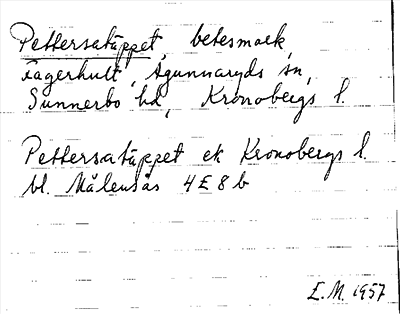 Pettersatäppet, betesmark,
Fagerhult, Agunnaryds sn,
Sunnerbo hd, Kronobergs l.
Pettersatäppet ek Kronobergs l.
bl. Målensås 4E8b
E.M. 1957